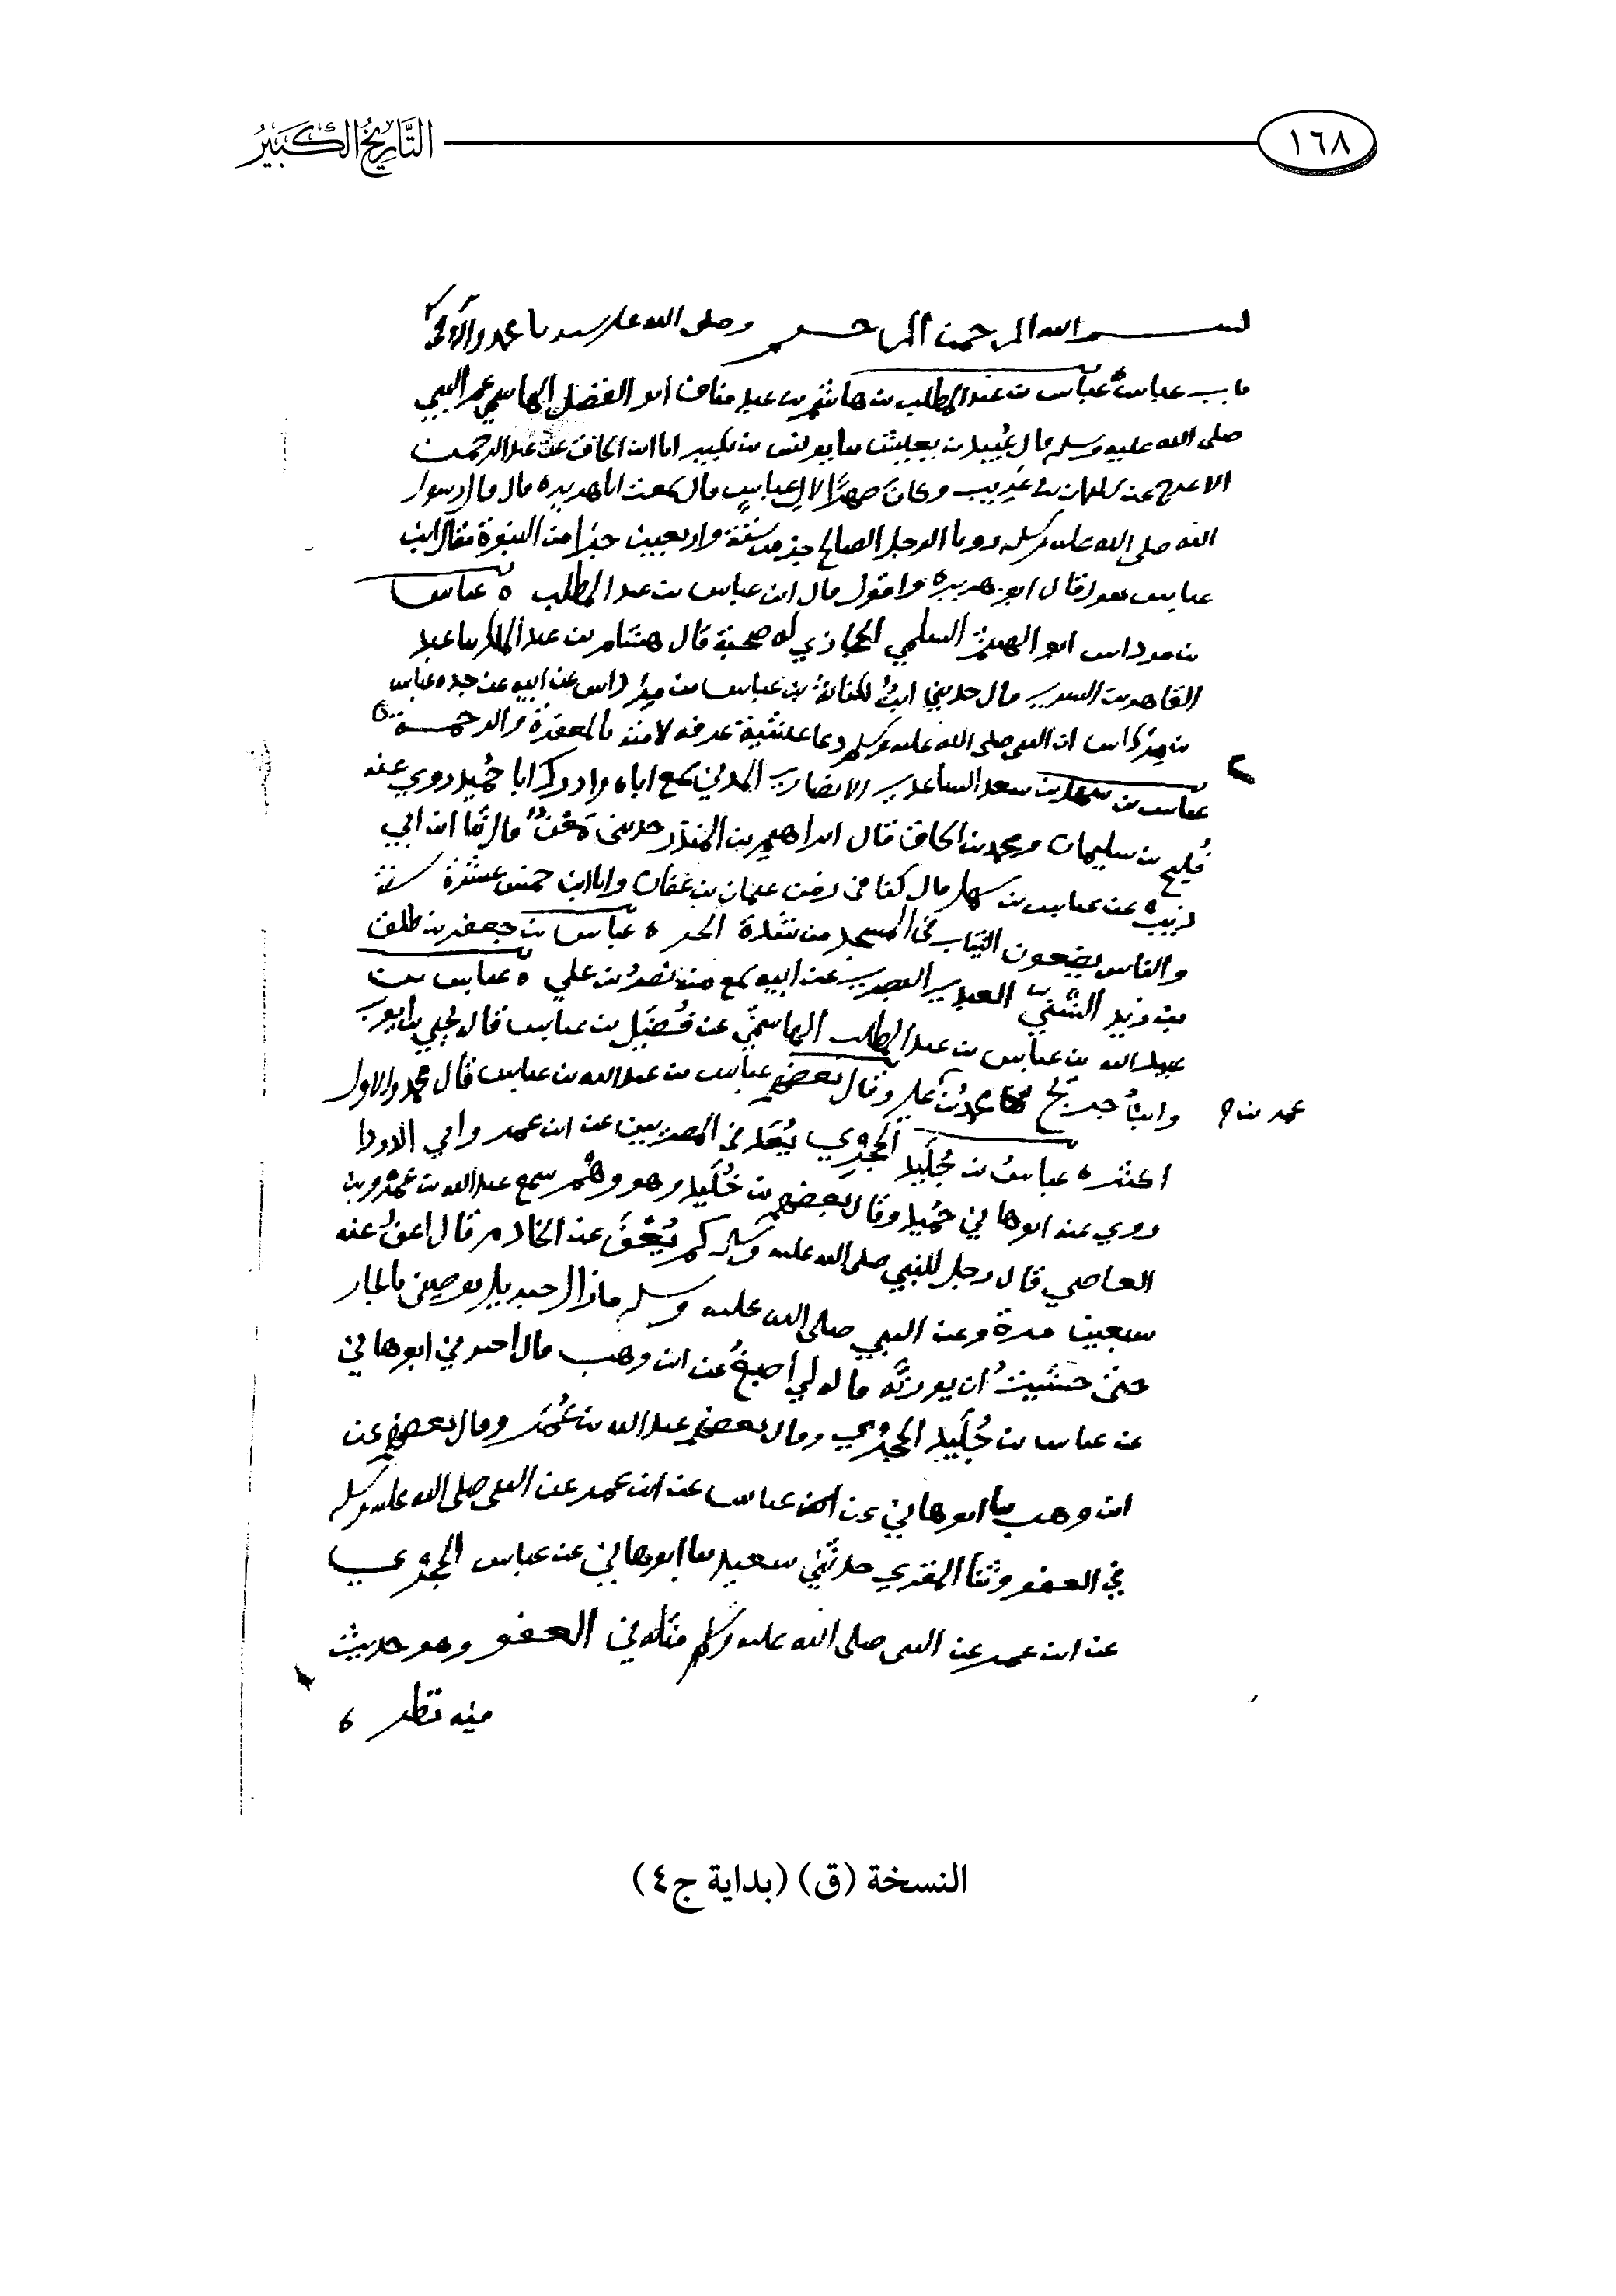 ١٦٨
التَّارِيخُ الكَبِيرُ
بسم الله الرحمن الرحيم وصلى الله على سيدنا محمد وآله
باب عباس عباس بن عبد المطلب بن هاشم بن عبد مناف ابو الفضل الهاشمي عم النبي
صلى الله عليه وسلم قال عُبيد بن يعيش نا يونس بن بكير انا ابن اسحاق عن عبد الرحمن
الاعرج عن سليمان بن عَريب وكان صهرًا لال عباس قال سمعت ابا هريره قال قال رسول
الله صلى الله عليه وسلم رويا الرجل الصالح جز من ستة واربعين جزا من النبوة فقال ابن
عباس فقال ابو هريره واقول قال ابن عباس بن عبد المطلب ه عباس
بن مرداس ابو الهيثم السلمي الحجازي له صحبة قال هشام بن عبد الملك نا عبد
القاهر بن السري قال حدثني ابنٌ لكنانة بن عباس بن مرداس عن ابيه عن جده عباس
بن مرداس ان النبي صلى الله عليه وسلم دعا عشية عرفه لامته بالمغفرة والرحمة ه
عباس بن سهل بن سعد الساعدي الانصاري المدني سمع اباه وادرك ابا حُميد روي عنه
فُليح بن سليمان ومحمد بن اسحاق قال ابراهيم بن المنذر حدثني مَعْنٌ قال ثنا ابن ابي
ذئب عن عباس بن سهل قال كنا في زمن عثمان بن عفان وانا ابن خمس عشرة سنة
والناس يضعون الثياب في المسجد من شدة الحر ه عباس بن جعفر بن طلق
بن زيد الشَّنّي العبدي البصري عن ابيه سمع منه نصر بن علي ه عباس بن
عبيد الله بن عباس بن عبد المطلب الهاشمي عن فُضَيل بن عباس قاله يحيى بن ايوب
وابنُ جريج عن محمد بن علي وقال بعضهم عباس بن عبد الله بن عباس قال محمد والاول
عمر بن
اكثر ه عباسُ بن جُلَيد الحَجْري يُعَد في المصريين عن ابن عمر وابي الدردا
روي عنه ابو هاني حُميد وقال بعضهم بن خُلَيد وهو وهْم سمع عبد الله بن عَمْرو بن
العاصي قال رجل للنبي صلى الله عليه وسلم كم يُعْفَى عن الخادم قال اعفُ عنه
سبعين مرة وعن النبي صلى الله عليه وسلم مازال جبريل يوصيني بالجار
حتى خشيتُ ان يورثه قاله لي اصبغُ عن ابن وهب قال اخبرني ابو هاني
عن عباس بن جُلَيد الحجْري وقال بعضهم عبد الله بن عُمَر وقال بعضهم عن
ابن وهب نا ابو هاني عن عباس عن ابن عمر عن النبي صلى الله عليه وسلم
في العفو وثنا المقري حدثني سعيد نا ابو هاني عن عباس الحجْري
عن ابن عمر عن النبي صلى الله عليه وسلم مثله في العفو وهو حديث
فيه نظر ه
النسخة (ق) (بداية ج٤)